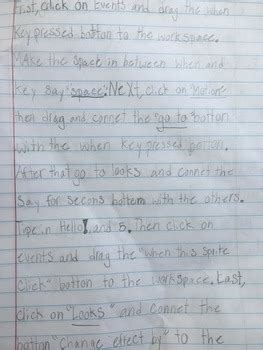 First, click on Events and drag the when
key pressed botton to the workspace.
Make the space in between when and
key say "space". Next, click on "Motion"
then drag and connet the "go to" botton
with the when key pressed botton.
After that go to looks and connet the
Say for secons bottem with the others.
Type in Hello!, and 5. Then click on
events and drag the "when this sprite
click" botton to the workspace. Last,
click on "Looks" and connet the
botton "Change effect by" to the